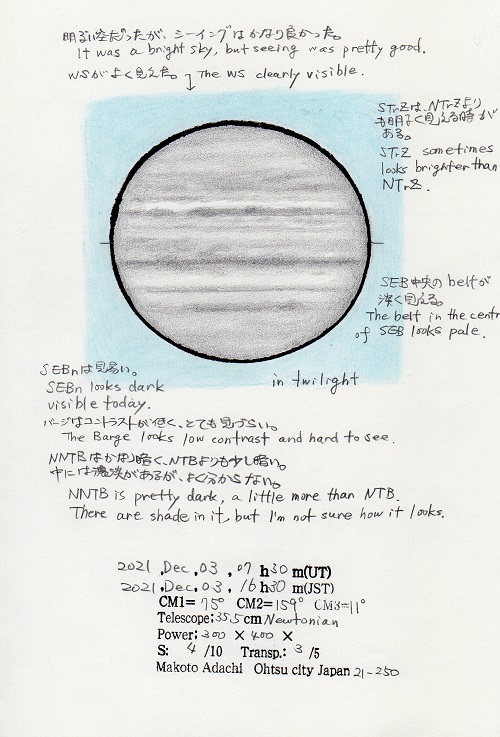 明るい空だったが、シーイングはかなり良かった。
It was a bright sky, but seeing was pretty good.
WSがよく見えた。 The WS clearly visible.
STrZは、NTrZより
も明るく見える時が
ある。
STrZ sometimes
looks brighter than
NTrZ.
SEB中央のbeltが
淡く見える。
The belt in the centr
of SEB looks pale.
SEBnは見易い。
SEBn looks dark
visible today.
in twilight
バージはコントラストが低く、とても見づらい。
The Barge looks low contrast and hard to see.
NNTBはかなり暗く、NTBよりも少し暗い。
中には濃淡があるが、よく分からない。
NNTB is pretty dark, a little more than NTB.
There are shade in it, but I'm not sure how it looks.
2021 .Dec.03 , 07 h30 m(UT)
2021 .Dec.03 , 16 h30 m(JST)
CM1= 75° CM2=159° CM3=11°
Telescope:35.5cm Newtonian
Power; 300 × 400 ×
S: 4 /10 Transp.: 3 /5
Makoto Adachi Ohtsu city Japan 21-250